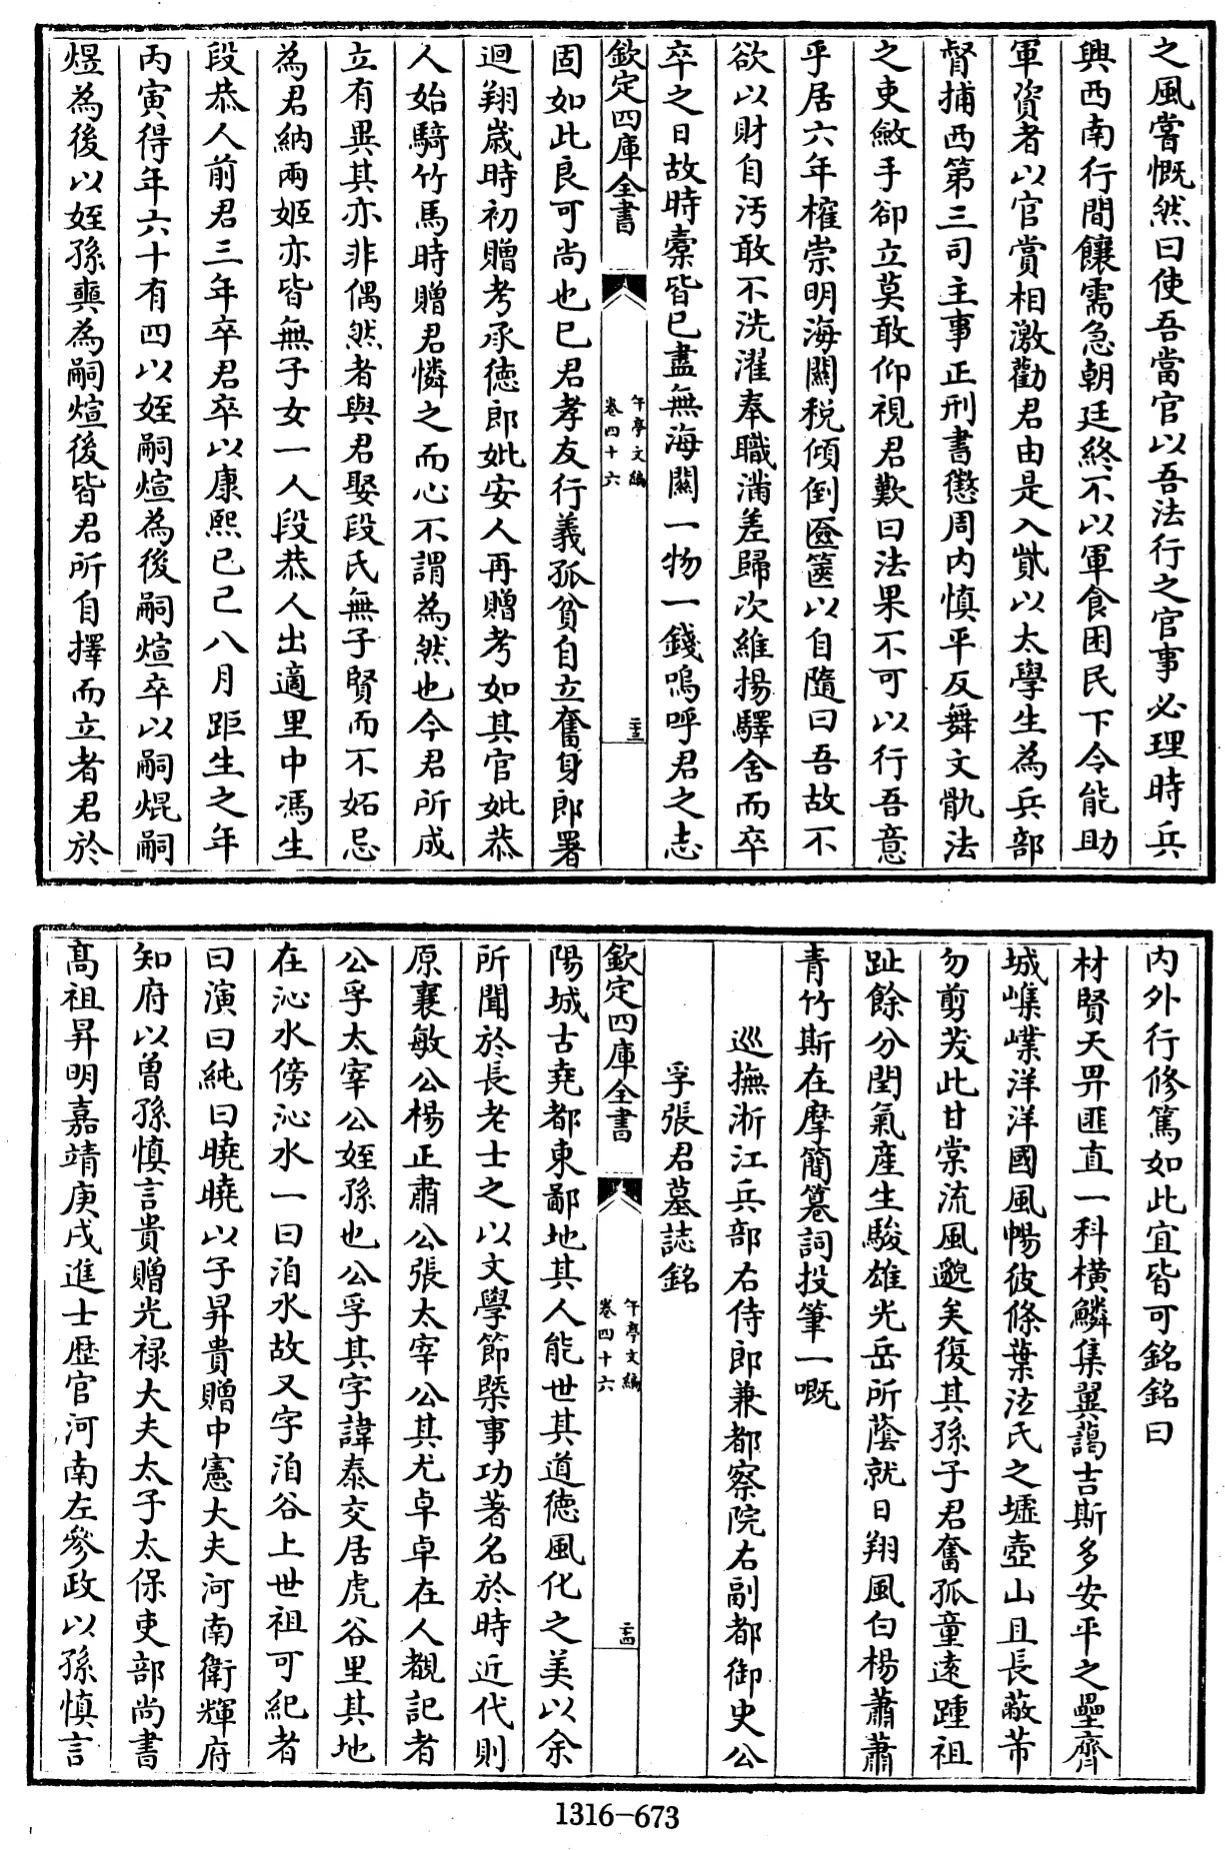 之風嘗慨然曰使吾當官以吾法行之官事必理時兵
興西南行間饟需急朝廷終不以軍食困民下令能助
軍資者以官賞相激勸君由是入貲以太學生為兵部
督捕西第三司主事正刑書懲周内慎平反舞文骫法
之吏斂手卻立莫敢仰視君歎曰法果不可以行吾意
乎居六年榷崇明海關税傾倒匳篋以自隨曰吾故不
欲以財自污敢不洗濯奉職滿差歸次維揚驛舍而卒
卒之日故時橐皆已盡無海關一物一錢嗚呼君之志
欽定四庫全書
午亭文編
卷四十六
二十三
固如此良可尚也已君孝友行義孤貧自立奮身郎署
迴翔歲時初贈考承徳郎妣安人再贈考如其官妣恭
人始騎竹馬時贈君憐之而心不謂為然也今君所成
立有異其亦非偶然者與君娶段氏無子賢而不妬忌
為君納兩姬亦皆無子女一人段恭人出適里中馮生
段恭人前君三年卒君卒以康熙已己八月距生之年
丙寅得年六十有四以姪嗣煊為後嗣煊卒以嗣焜嗣
煜為後以姪孫奭為嗣煊後皆君所自擇而立者君於
内外行修篤如此宜皆可銘銘曰
材賢天畀匪直一科横鱗集翼藹吉斯多安平之壘齊
城嶫嶫洋洋國風暢彼條葉汯氏之壚壺山且長蔽芾
勿剪茇此甘棠流風邈矣復其孫子君奮孤童逺踵祖
趾餘分閏氣産生駿雄光岳所蔭就日翔風白楊蕭蕭
青竹斯在摩簡篹詞投筆一嘅
巡撫淅江兵部右侍郎兼都察院右副都御史公
孚張君墓誌銘
欽定四庫全書
午亭文編
卷四十六
二十四
陽城古堯都東鄙地其人能世其道徳風化之美以余
所聞於長老士之以文學節槩事功著名於時近代則
原襄敏公楊正肅公張太宰公其尤卓卓在人覩記者
公孚太宰公姪孫也公孚其字諱泰交居虎谷里其地
在沁水傍沁水一曰洎水故又字洎谷上世祖可紀者
曰演曰純曰曉曉以子昇貴贈中憲大夫河南衛輝府
知府以曽孫慎言貴贈光禄大夫太子太保吏部尚書
髙祖昇明嘉靖庚戌進士歴官河南左參政以孫慎言
1316-673